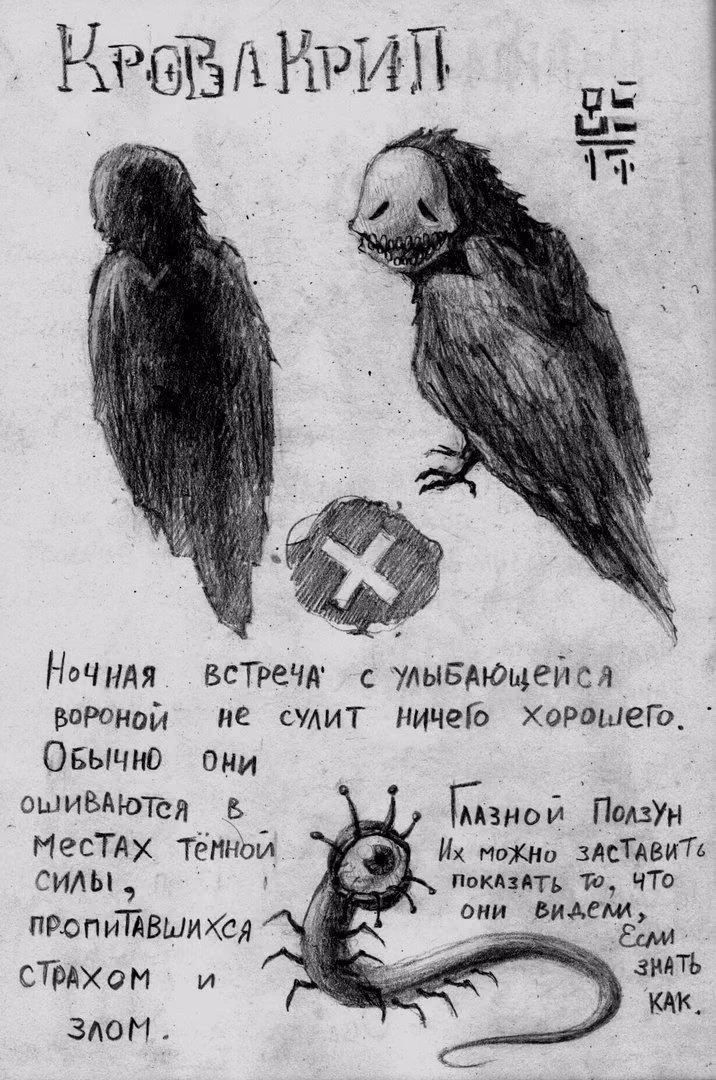 КРОВЛ КРИП
Ночная встреча с улыбающейся
вороной не сулит ничего хорошего.
Обычно они
ошиваются в
местах тёмной
силы,
пропитавшихся
страхом и
злом.
Глазной Ползун
Их можно заставить
показать то, что
они видели,
Если
знать
как.